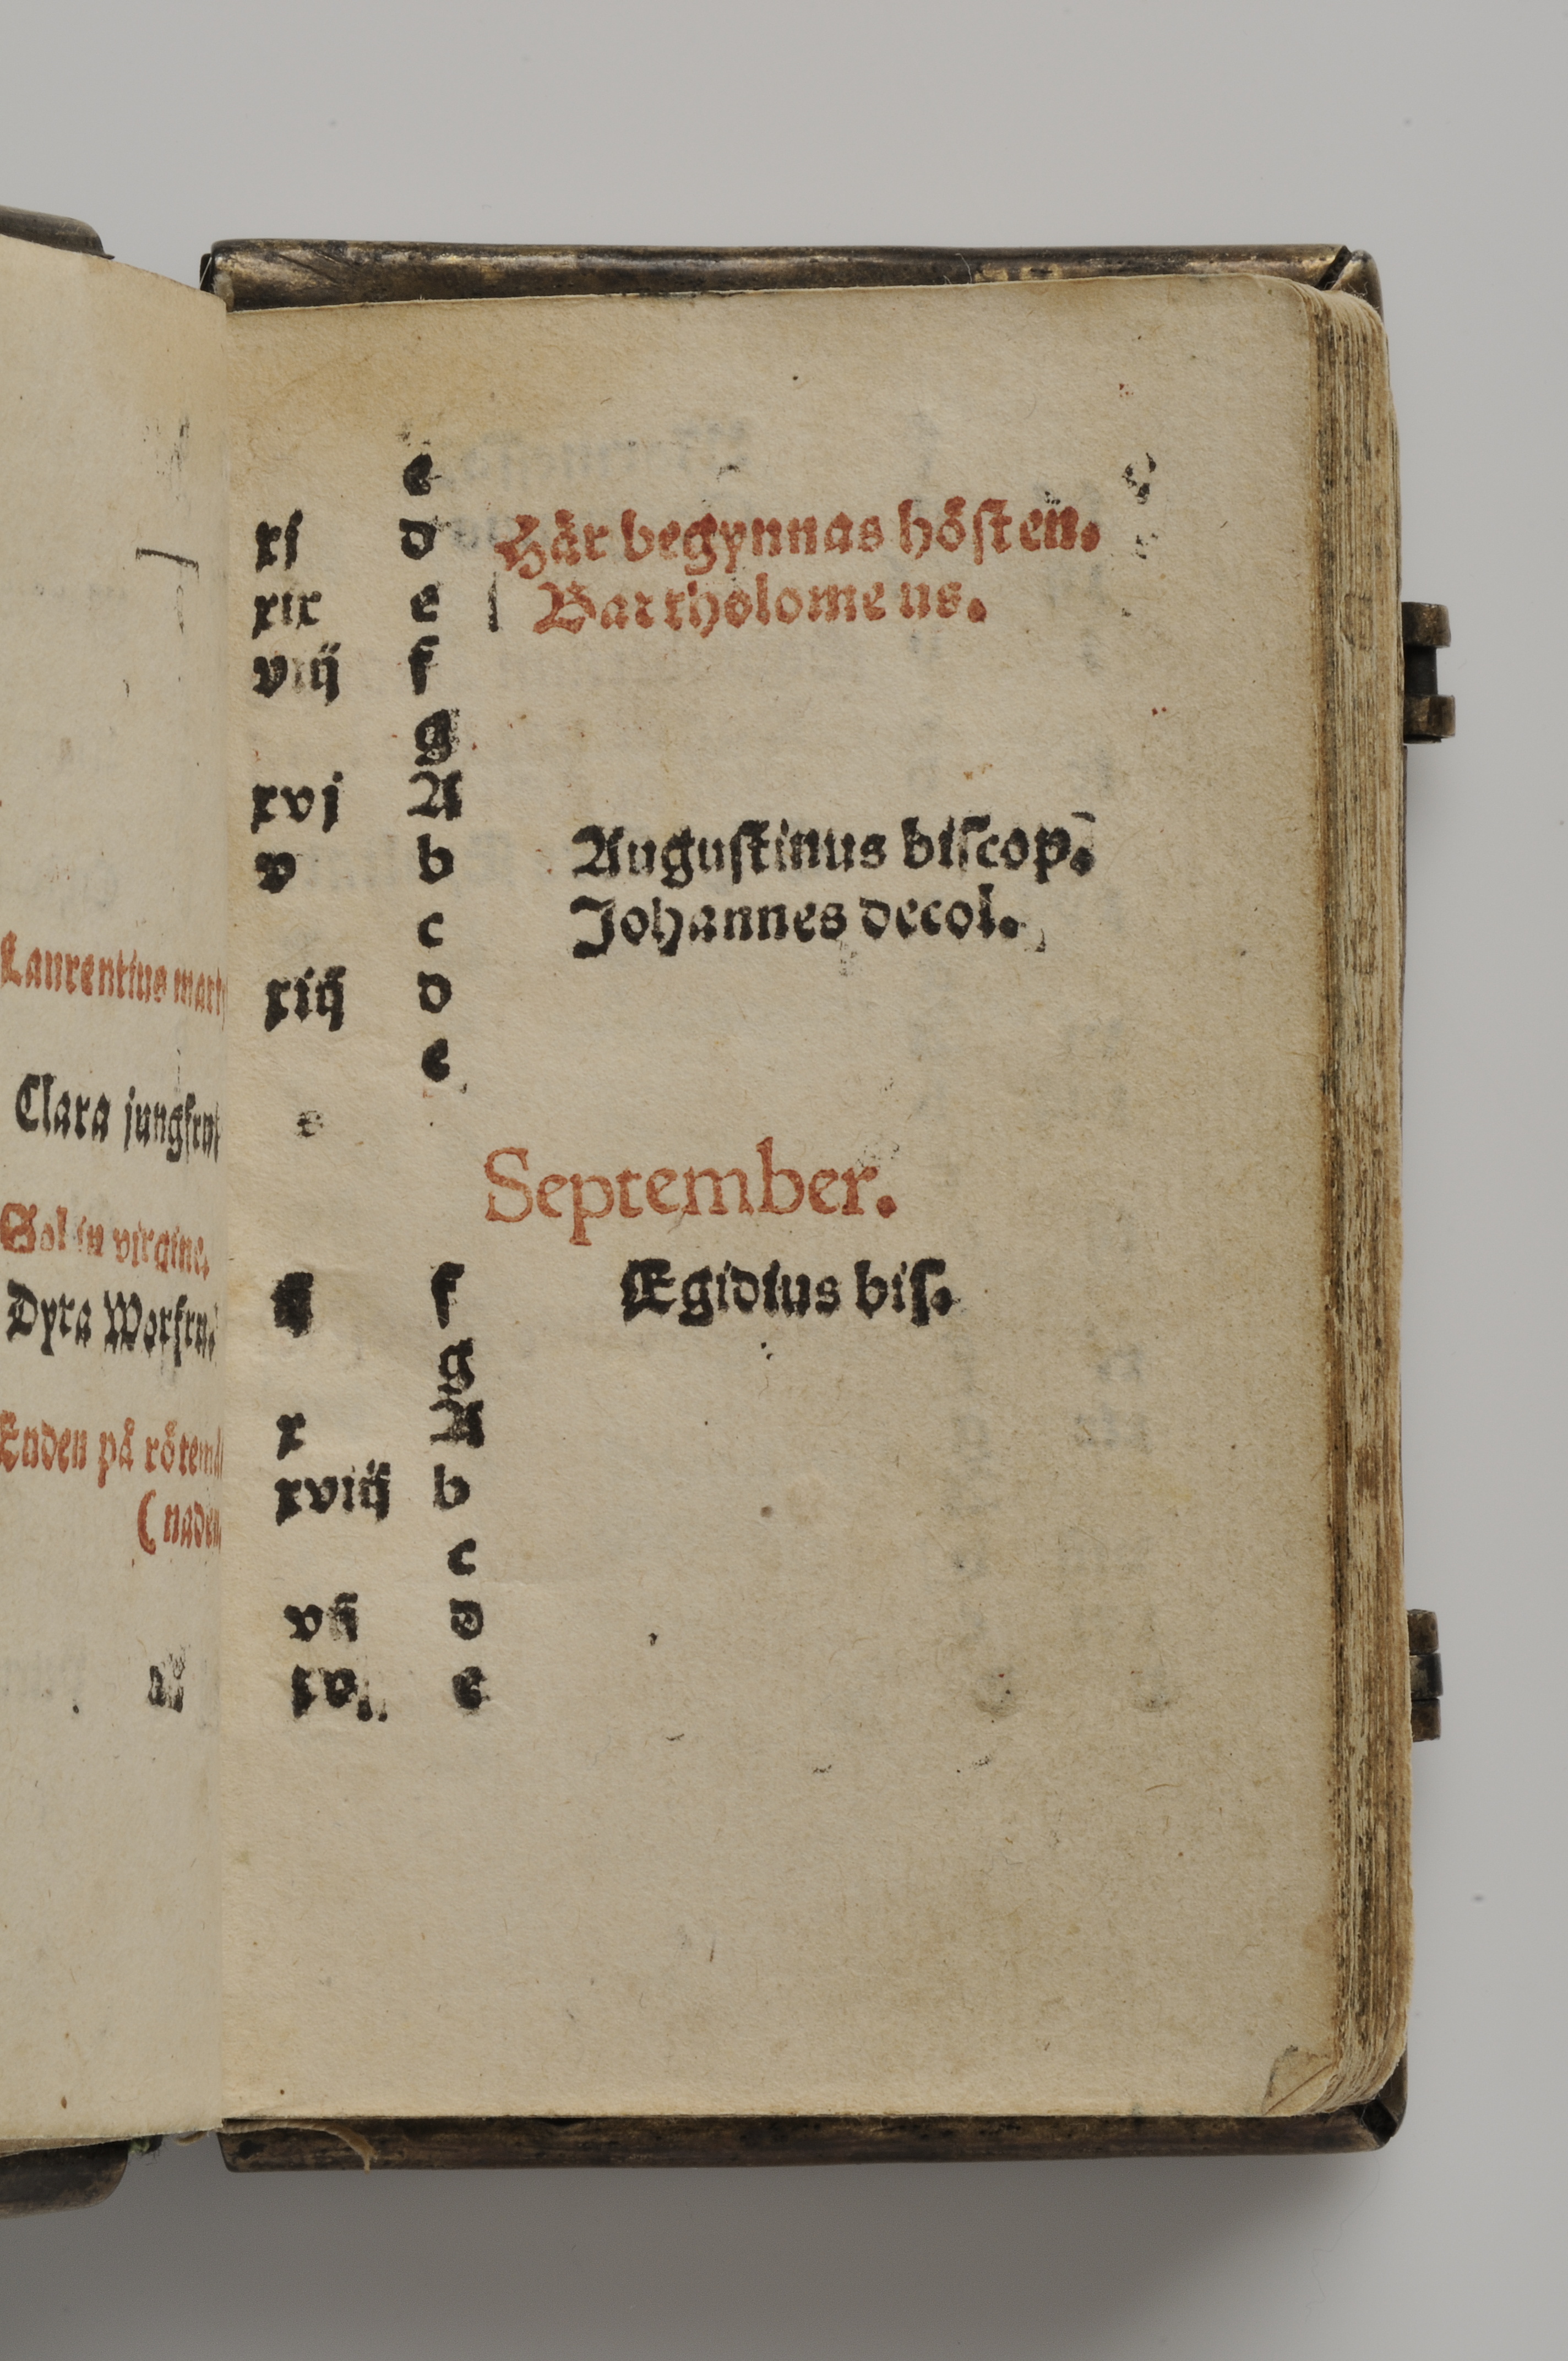 Laurentius mart
Clara jungfru
Sol in virgine.
Dyra Worfru
Enden på rötem
(naden
e
xi d Här begynnas hösten.
xix e Bartholomeus.
viij f
g
xvj A
v b Augustinus biscop.
c Johannes decol.
xiij d
e
September.
ij f Ægidius bis.
g
x A
xviij b
c
vij d
xv e